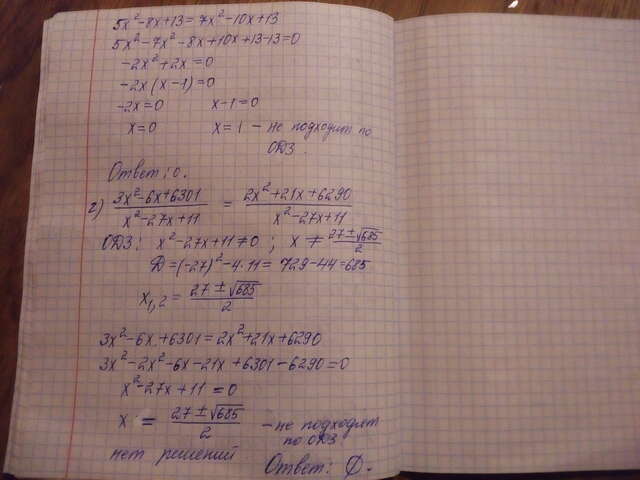 5x²-8x+13=7x²-10x+13
5x²-7x²-8x+10x+13-13=0
-2x²+2x=0
-2x(x-1)=0
-2x=0 x-1=0
x=0 x=1 - не подходит по
ОДЗ.
Ответ: 0.
г) (3x²-6x+6301)/(x²-27x+11) = (2x²+21x+6290)/(x²-27x+11)
ОДЗ: x²-27x+11≠0; x ≠ (27±√685)/2
D=(-27)²-4·11= 729-44=685
x₁,₂= (27±√685)/2
3x²-6x+6301=2x²+21x+6290
3x²-2x²-6x-21x+6301-6290=0
x²-27x+11=0
x = (27±√685)/2 - не подходят
по ОДЗ
нет решений Ответ: ∅.